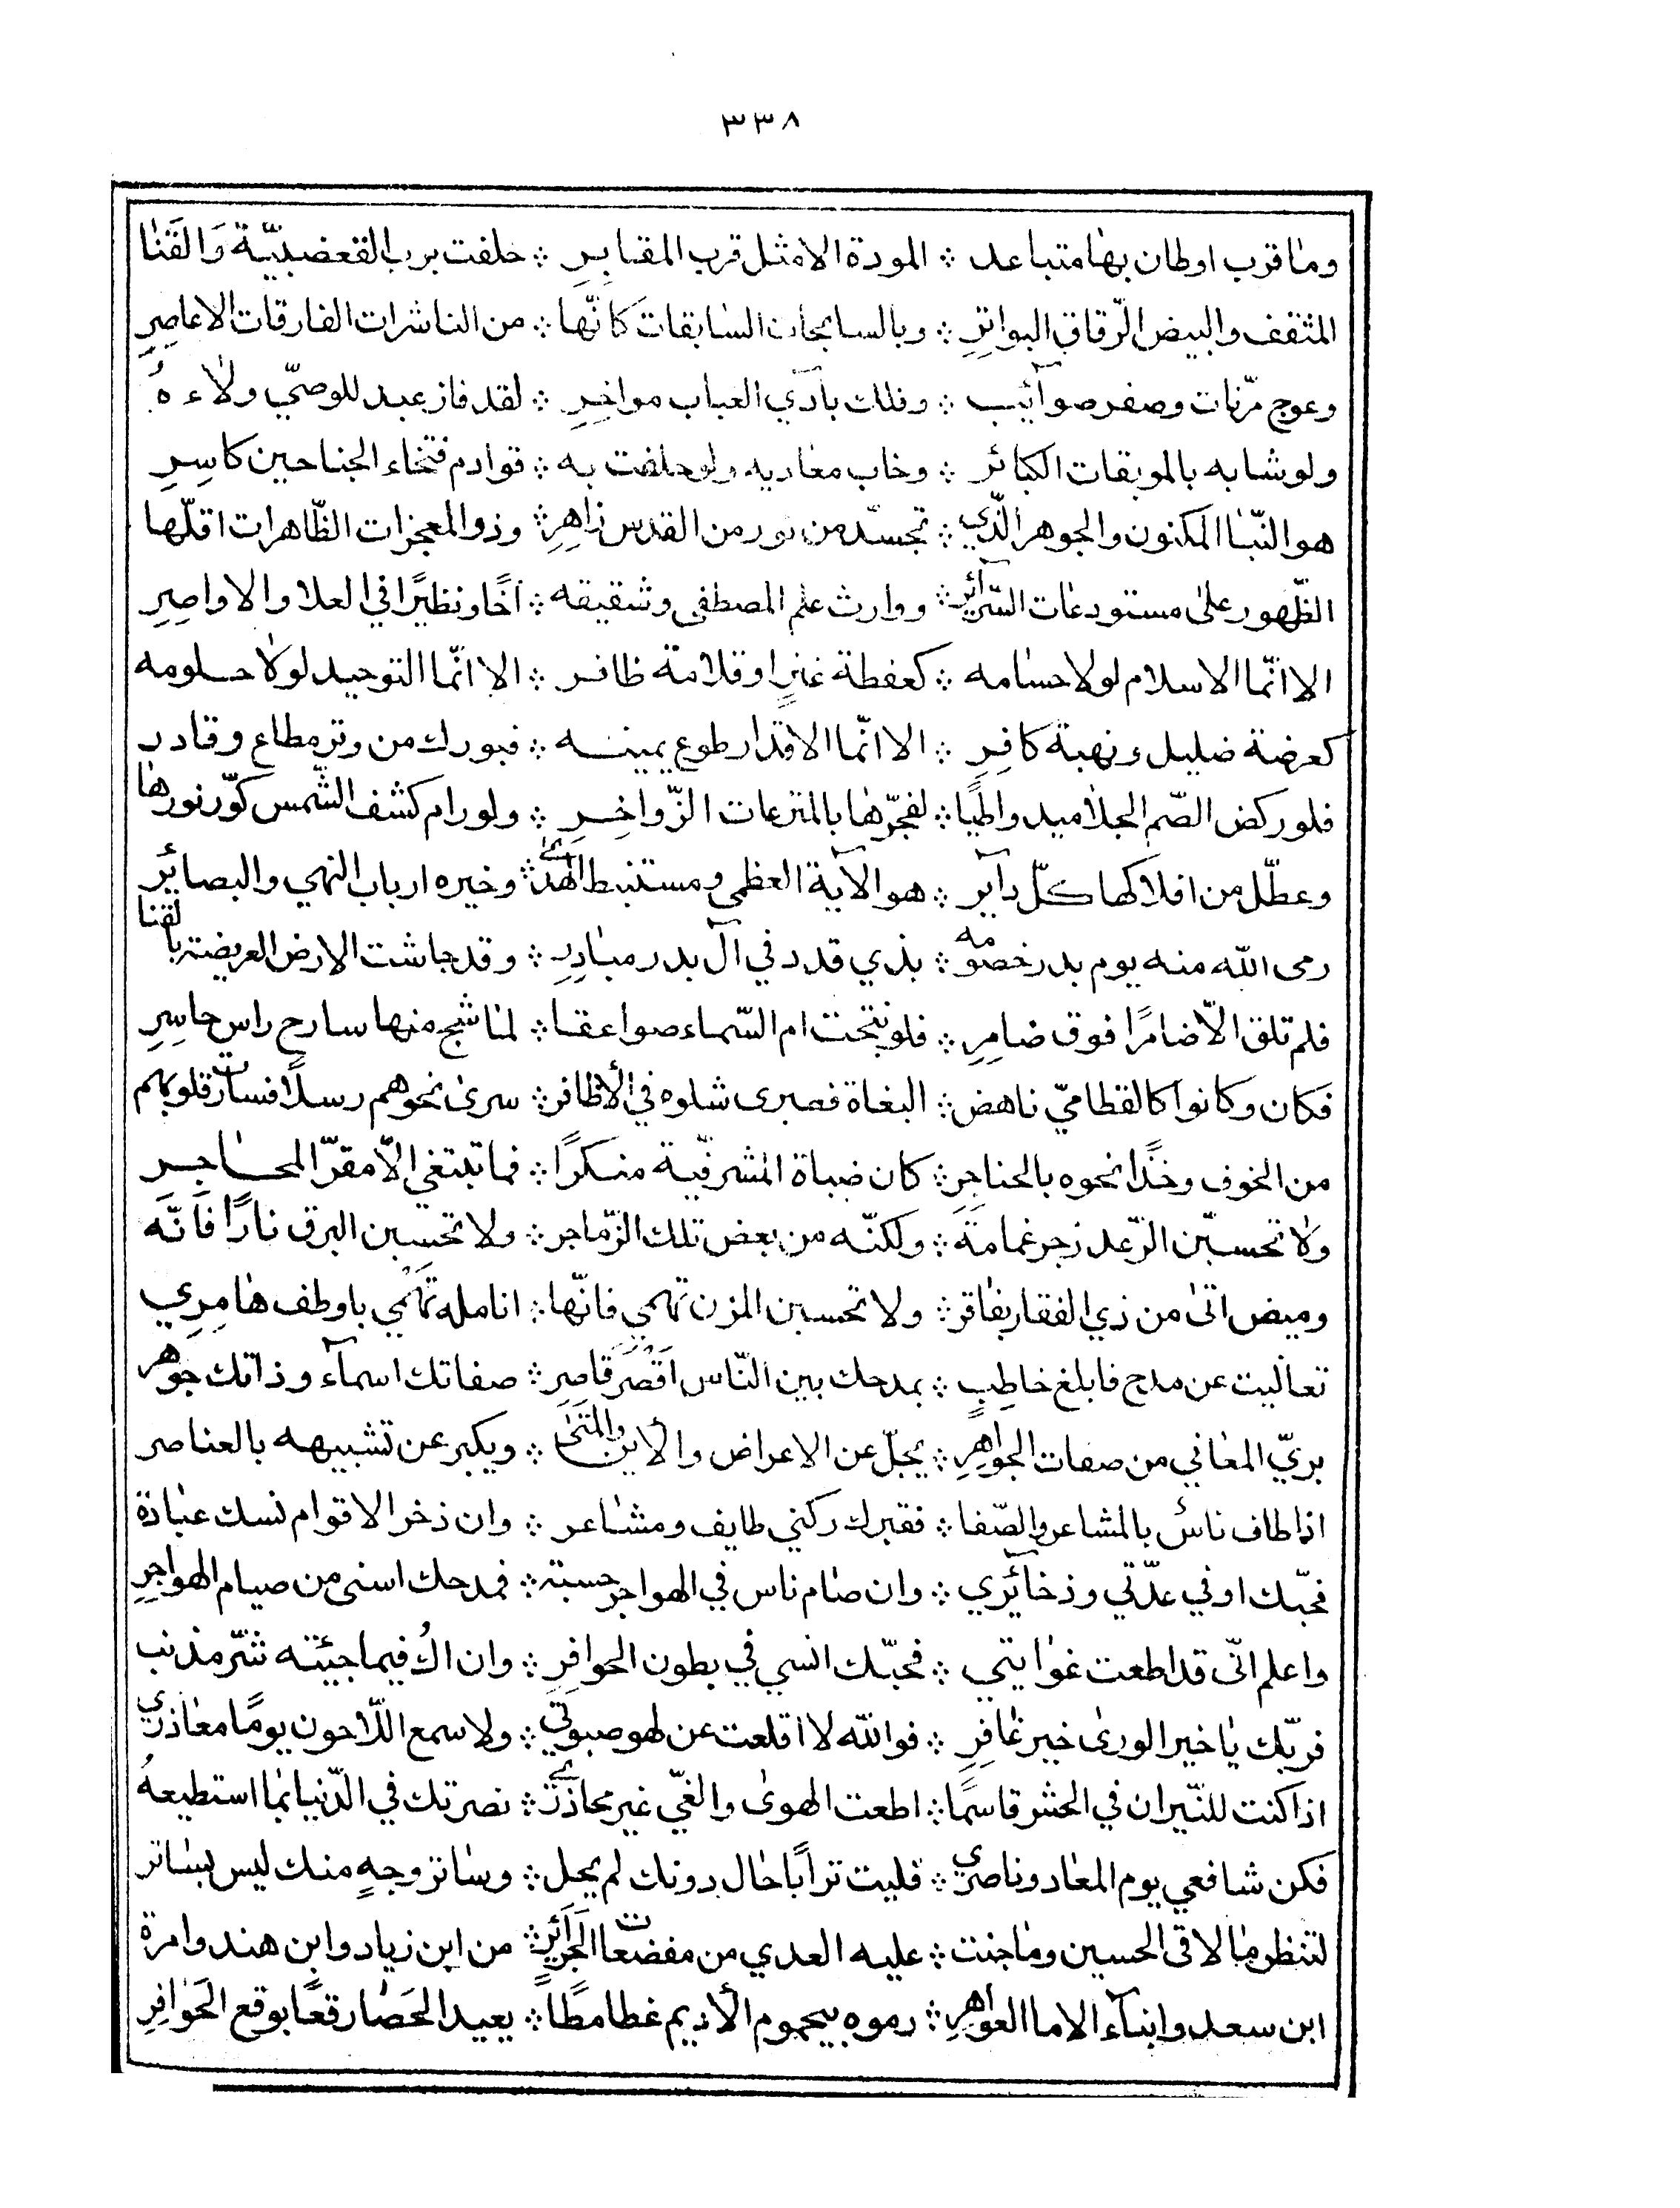 ٣٣٨
وما قرب اوطان بها متباعد ∴ المودة الا مثل قرب المقابرِ ∴ حلفت برب القعضبيّة وَالقَنا
المثقف والبيض الرّقاق البواترِ ∴ وبالسابحات السابقات كَانّها ∴ من الناشرات الفارقات الاعاصِرِ
وعوج مرّنات وصفر صوآئب ∴ وفلك بآذي العباب مواخِرِ ∴ لقد فاز عبد للوصيّ ولاءهُ
ولو شابه بالموبقات الكبائر ∴ وخاب معاديه ولو حلقت به ∴ قوادم فتخاء الجناحين كاسِرِ
هو النّبا المكنون والجوهر الّذي ∴ تجسّد من نور من القدس زاهِرِ ∴ وذو المعجزات الظّاهرات اقلّها
الظّهور على مستودعات السّرآئرِ ∴ ووارث علم المصطفى وشقيقه ∴ اخًا ونظيرًا في العلا والاواصِرِ
الا انّما الاسلام لولا حسامه ∴ كعفطة عنزٍ او قلامة ظافر ∴ الا انّما التوحيد لولا حلومه
كعرضة ضليل ونهبة كافِرِ ∴ الا انّما الاقدار طوع يمينه ∴ فبورك من وتر مطاع وقادر
فلو ركض الصّم الجلاميد واطيًا ∴ لفجّرها بالمترعات الزّواخِرِ ∴ ولو رام كشف الشّمس كوّر نورها
وعطّل من افلاكها كلّ دآير ∴ هو الآية العظمى ومستنبط الهدى ∴ وخيره ارباب النهي والبصائرِ
رمى الله منه يوم بدر خصومه ∴ بذي قدد في آل بدر مبادِرِ ∴ وقد جاشت الارض العريضة بالقنا
فلم تلق الّا ضامرًا فوق ضامِرِ ∴ فلو نتجت ام السّماء صواعقا ∴ لما شج منها سارح راس حاسِرِ
فكان وكانوا كالقطاميّ ناهض ∴ البغاة فصرى شلوه في الأظافر ∴ سرى نحوهم رسلًا فسارت قلوبهم
من الخوف وخدًا نحوه بالحناجر ∴ كان ضباة المشرفيّة منكرًا ∴ فما تبتغي الّا مقرّ المحاجر
ولا تحسبّن الرّعد زجر غمامَة ∴ ولكنّه من بعض تلك الزّماجر ∴ ولا تحسبن البرق نارًا فَانّه
وميض اتى من ذي الفقار بفاقر ∴ ولا تحسبن المزن تهمي فانّها ∴ انامله تَهْمي باوطف هامِرِي
تعاليت عن مدح فابلغ خاطِبٍ ∴ بمدحك بين النّاس اَقْصَر قاصِرِ ∴ صفاتك اسمآء وذاتك جوهر
بريّ المعاني من صفات الجواهِرِ ∴ يجلّ عن الاعراض والأين والمتى ∴ ويكبر عن تشبيهه بالعناصر
اذا طاف ناسٌ بالمشاعر والصّفا ∴ فقبرك ركني طايف ومشاعر ∴ وان ذخر الاقوام نسك عبادة
فحبّك اوفي عدّتي وذخآئري ∴ وان صام ناس في الهواجر حسبة ∴ فمدحك اسنى من صيام الهواجِرِ
واعلم انّى قد اطعت غوايتي ∴ فحبّك انسي في بطون الحوافِرِ ∴ وان اكُ فيما جيئته شرّ مذنب
فربّك يا خير الورى خير غافِرِ ∴ فوالله لا اقلعت عن لهو صبوتي ∴ ولا سمع اللّاحون يومًا معاذري
اذا كنت للنّيران في الحشر قاسمًا ∴ اطعت الهوى والغيّ غير محاذرى ∴ نصرتك في الدّنيا بما استطيعهُ
فكن شافعي يوم المعاد وناصري ∴ فليت ترابًا حال دونك لم يحل ∴ وساتر وجهٍ منك ليس بساتر
لتنظر ما لاقى الحسين وما جنت ∴ عليه العدي من مفضعات الجرآئرِ ∴ من ابن زياد وابن هند وامرة
ابن سعد وابنآء الاما العواهِرِ ∴ رموه بيحموم الأديم غطامطًا ∴ يعيد الحَصَا رقعًا بوقع الحَوافِرِ